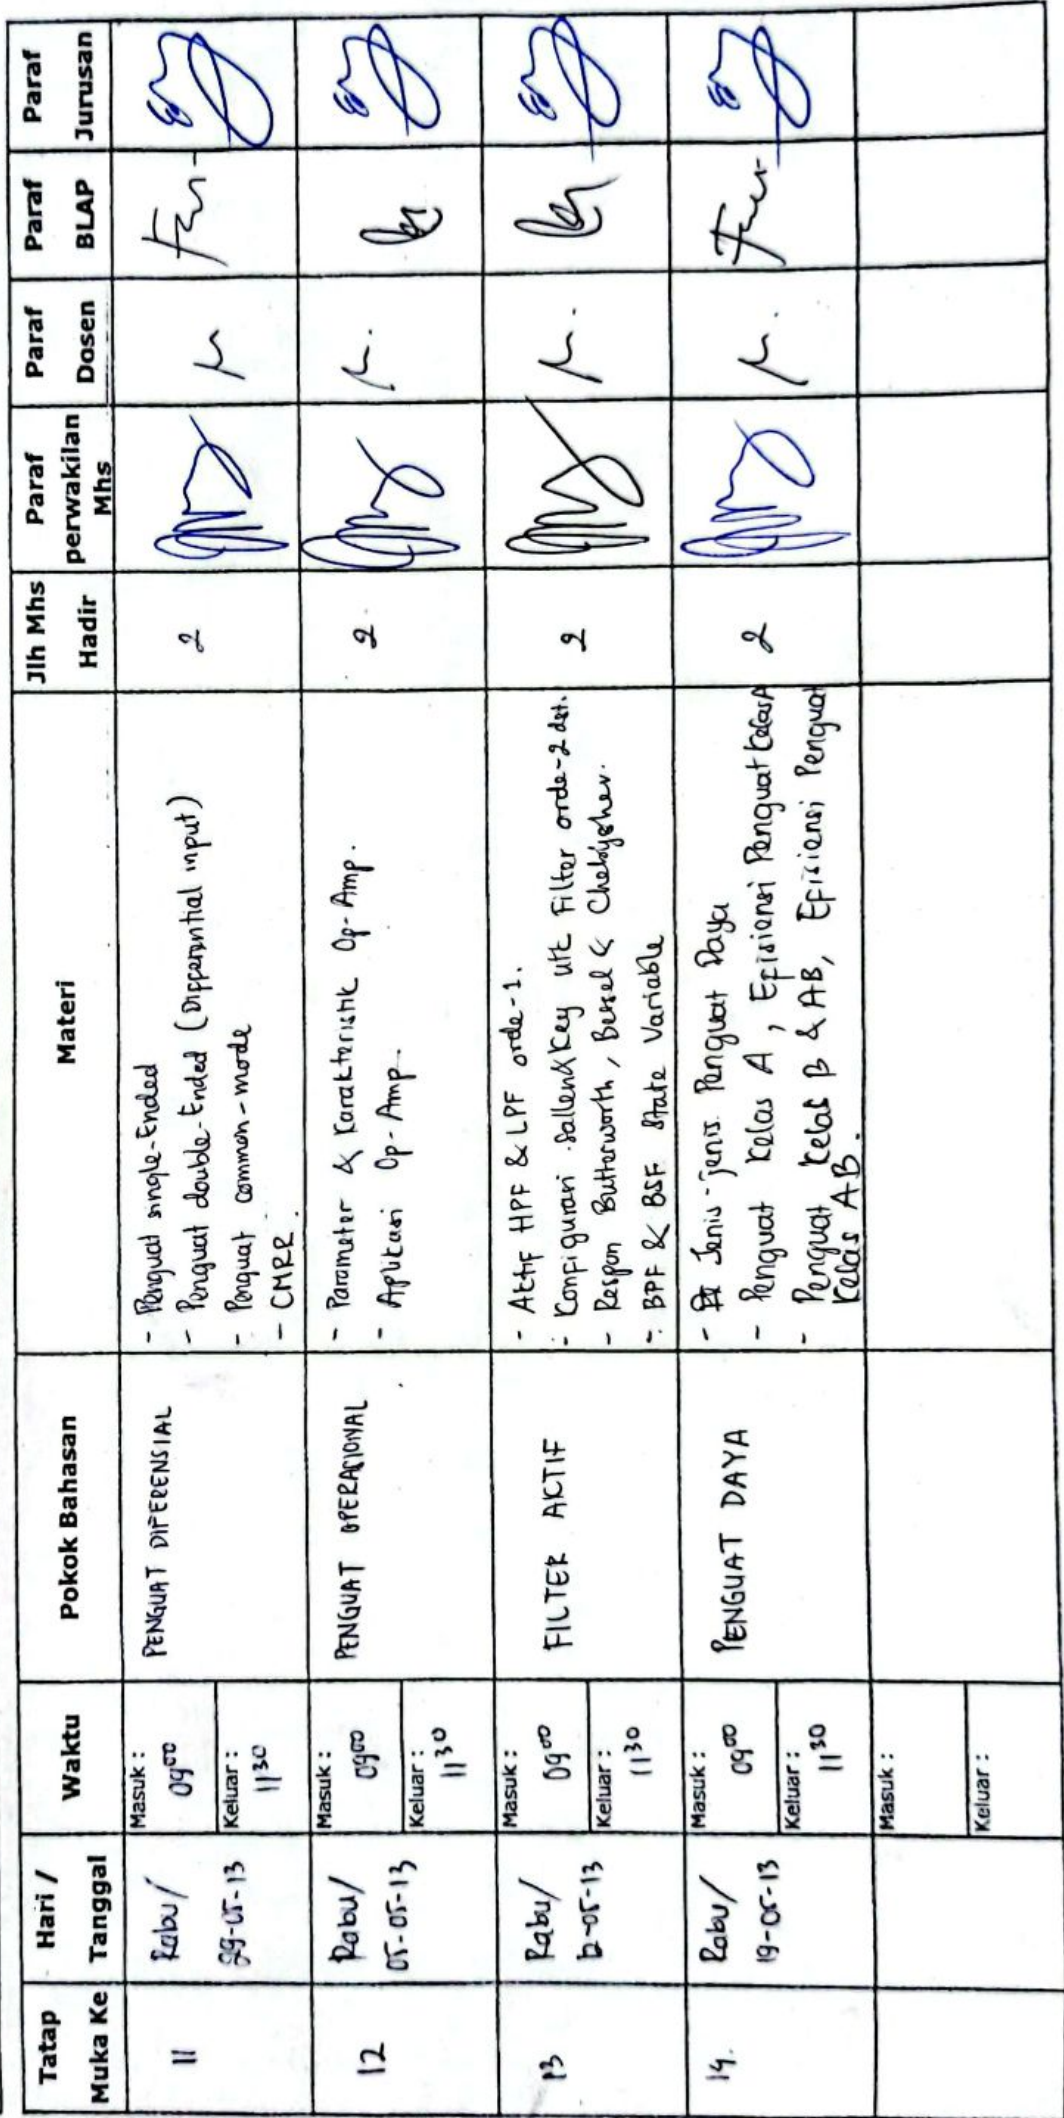 Tatap Muka Ke
Hari / Tanggal
Waktu
Pokok Bahasan
Materi
Jlh Mhs Hadir
Paraf perwakilan Mhs
Paraf Dosen
Paraf BLAP
Paraf Jurusan
11
Rabu/
29-05-13
Masuk :
09 00
Keluar :
11 30
PENGUAT DIFERENSIAL
- Penguat single-Ended
- Penguat double-Ended (Differential input)
- Penguat common-mode
- CMRR.
2
12
Rabu/
05-05-13
Masuk :
09 00
Keluar :
11 30
PENGUAT OPERASIONAL
- Parameter & Karakteristik Op-Amp.
- Aplikasi Op-Amp.
2
13
Rabu/
12-05-13
Masuk :
09 00
Keluar :
11 30
FILTER AKTIF
- Aktif HPF & LPF orde-1.
- Konfigurasi Sallen&Key utk Filter orde-2 dst.
- Respon Butterworth, Bessel & Chebyshev.
- BPF & BSF State Variable
2
14.
Rabu/
19-05-13
Masuk :
09 00
Keluar :
11 30
PENGUAT DAYA
- Jenis-jenis Penguat Daya
- Penguat Kelas A, Efisiensi Penguat Kelas A
- Penguat Kelas B & AB, Efisiensi Penguat
Kelas AB.
2
Masuk :
Keluar :